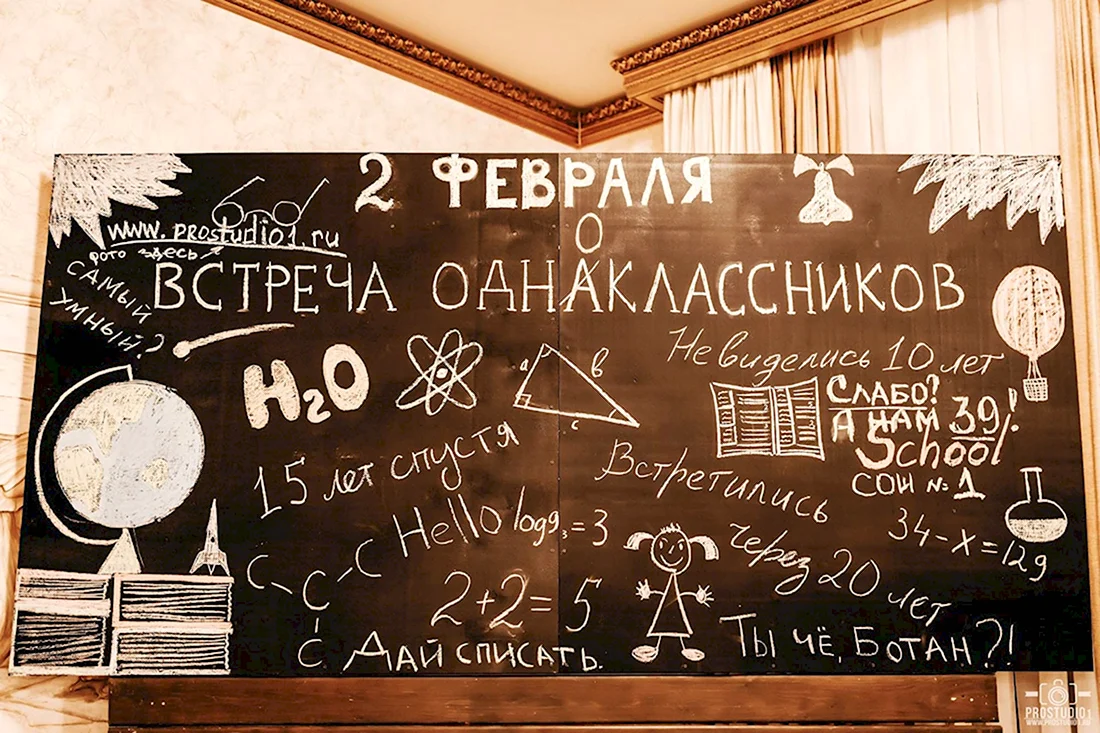 2 ФЕВРАЛЯ
www.prostudio1.ru
фото здесь
САМЫЙ
УМНЫЙ?
О
ВСТРЕЧА ОДНАКЛАССНИКОВ
Не виделись 10 лет
H2O
a
b
c
СЛАБО?
А НАМ 39!
School
СОШ №1
15 лет спустя
Встретились
через 20 лет
Hello
log9 3 = 3
34-x=129
C
C
C
C
2+2= 5
ДАЙ СПИСАТЬ.
ТЫ ЧЁ, БОТАН?!
PROSTUDIO1
WWW.PROSTUDIO1.RU